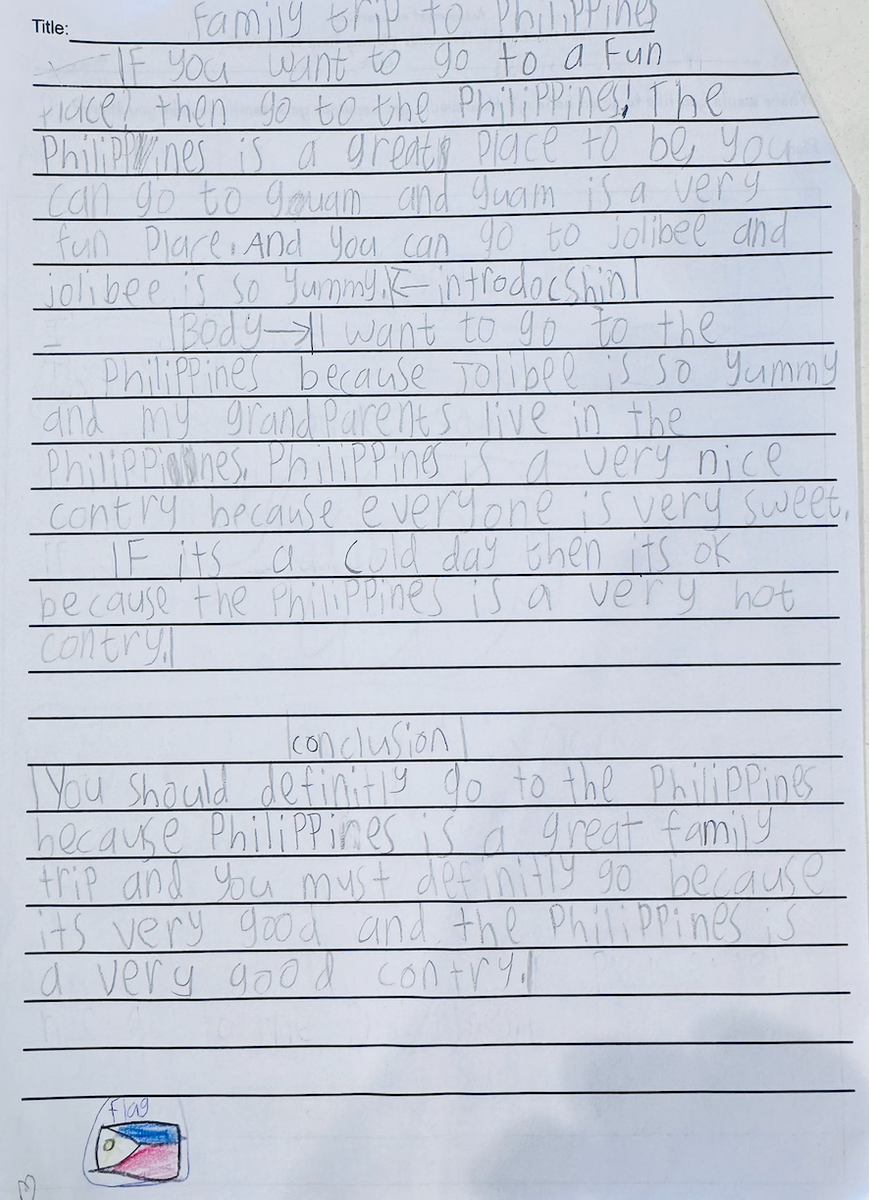 Title: Family trip to Philippines
IF you want to go to a Fun
Place, then go to the Philippines! The
Philippines is a great place to be, you
can go to gouam and guam is a very
fun Place. And you can go to jolibee and
jolibee is so yummy.|<- introdocshin|
|Body->|I want to go to the
Philippines because Jolibee is so yummy
and my grandparents live in the
Philippines. Philippines is a very nice
contry because everyone is very sweet.
IF its a cold day then its ok
because the Philippines is a very hot
contry.|
|conclusion|
|You should definitly go to the Philippines
because Philippines is a great family
trip and you must definitly go because
its very good and the Philippines is
a very good contry.|
flag